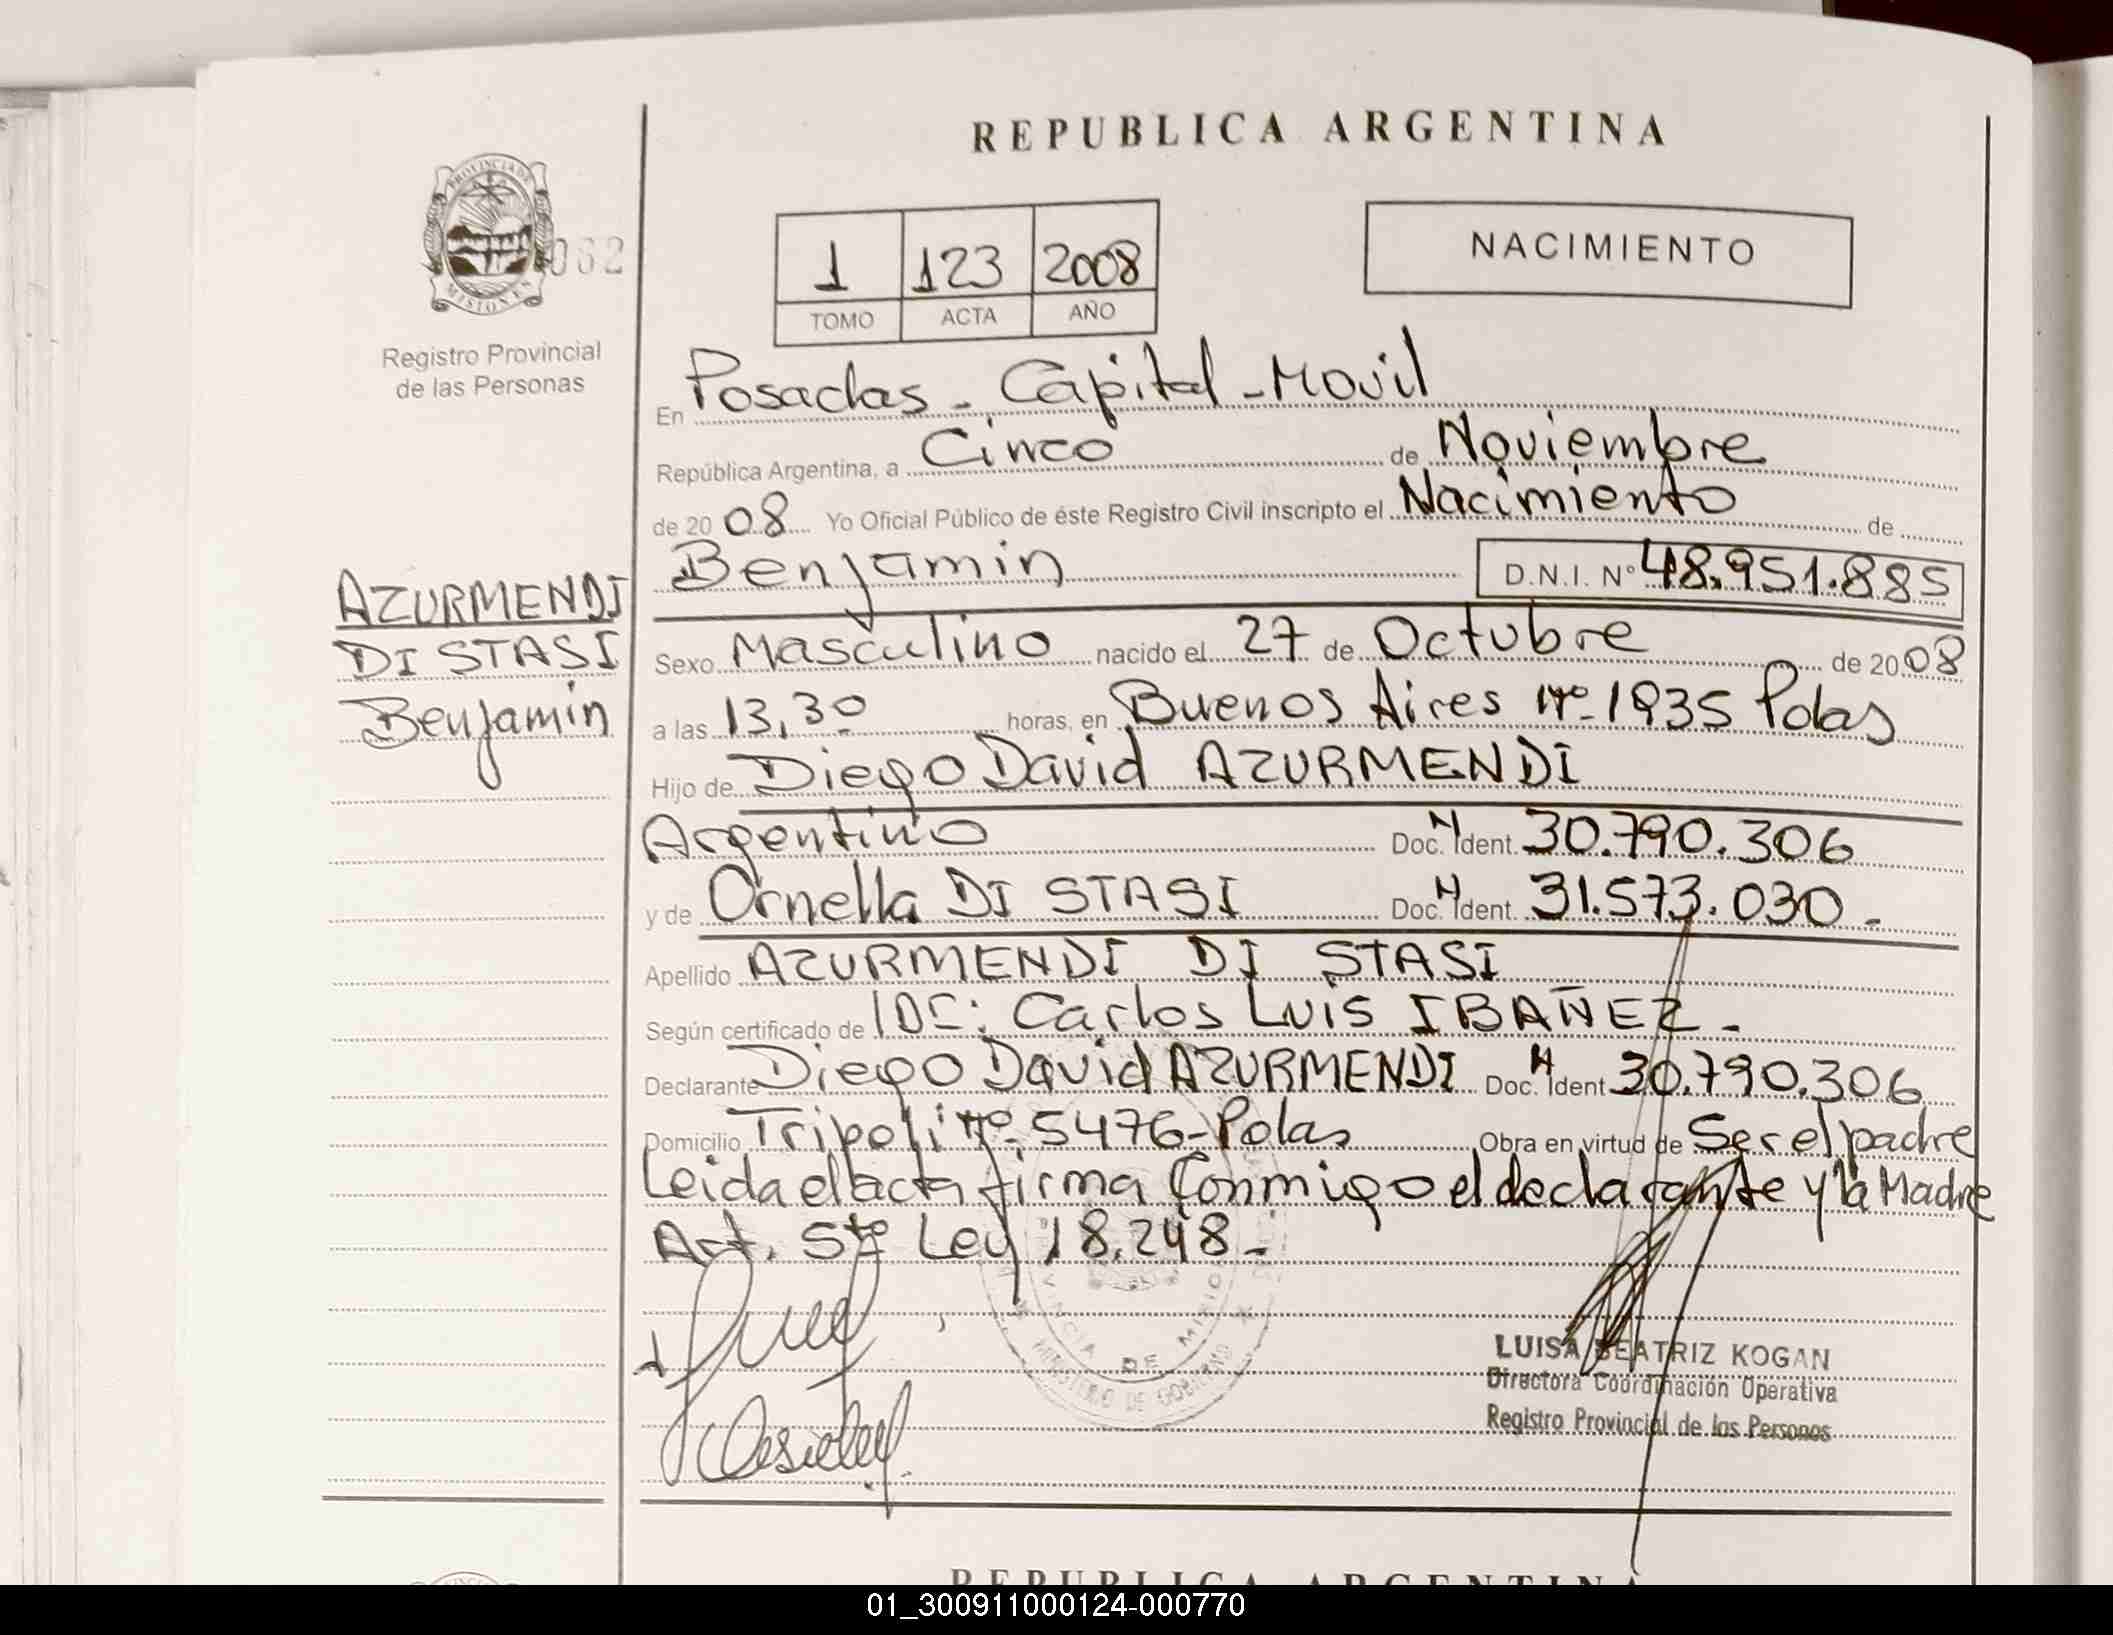 REPUBLICA ARGENTINA
PROVINCIA DE MISIONES
062
Registro Provincial
de las Personas
1 123 2008
TOMO ACTA AÑO
NACIMIENTO
En Posadas - Capital - Movil
República Argentina, a Cinco de Noviembre
de 20 08 Yo Oficial Público de éste Registro Civil inscripto el Nacimiento de
Benjamin D.N.I. Nº 48.951.885
AZURMENDI
DI STASI
Benjamin
Sexo Masculino nacido el 27 de Octubre de 20 08
a las 13,30 horas, en Buenos Aires Nº 1935 Pdas
Hijo de Diego David AZURMENDI
Argentino Doc. N Ident. 30.790.306
y de Ornella DI STASI Doc. N Ident. 31.573.030.-
Apellido AZURMENDI DI STASI
Según certificado de Carlos Luis IBAÑEZ.-
Declarante Diego David AZURMENDI Doc. N Ident 30.790.306
Domicilio Tripoli Nº 5476-Pdas Obra en virtud de Ser el padre
Leida el acta firma Conmigo el declarante y la Madre
Art. 5to Ley 18.248.-
PROVINCIA DE MISIONES
MINISTERIO DE GOBIERNO
LUISA BEATRIZ KOGAN
Directora Coordinación Operativa
Registro Provincial de las Personas
REPUBLICA ARGENTINA
01_300911000124-000770